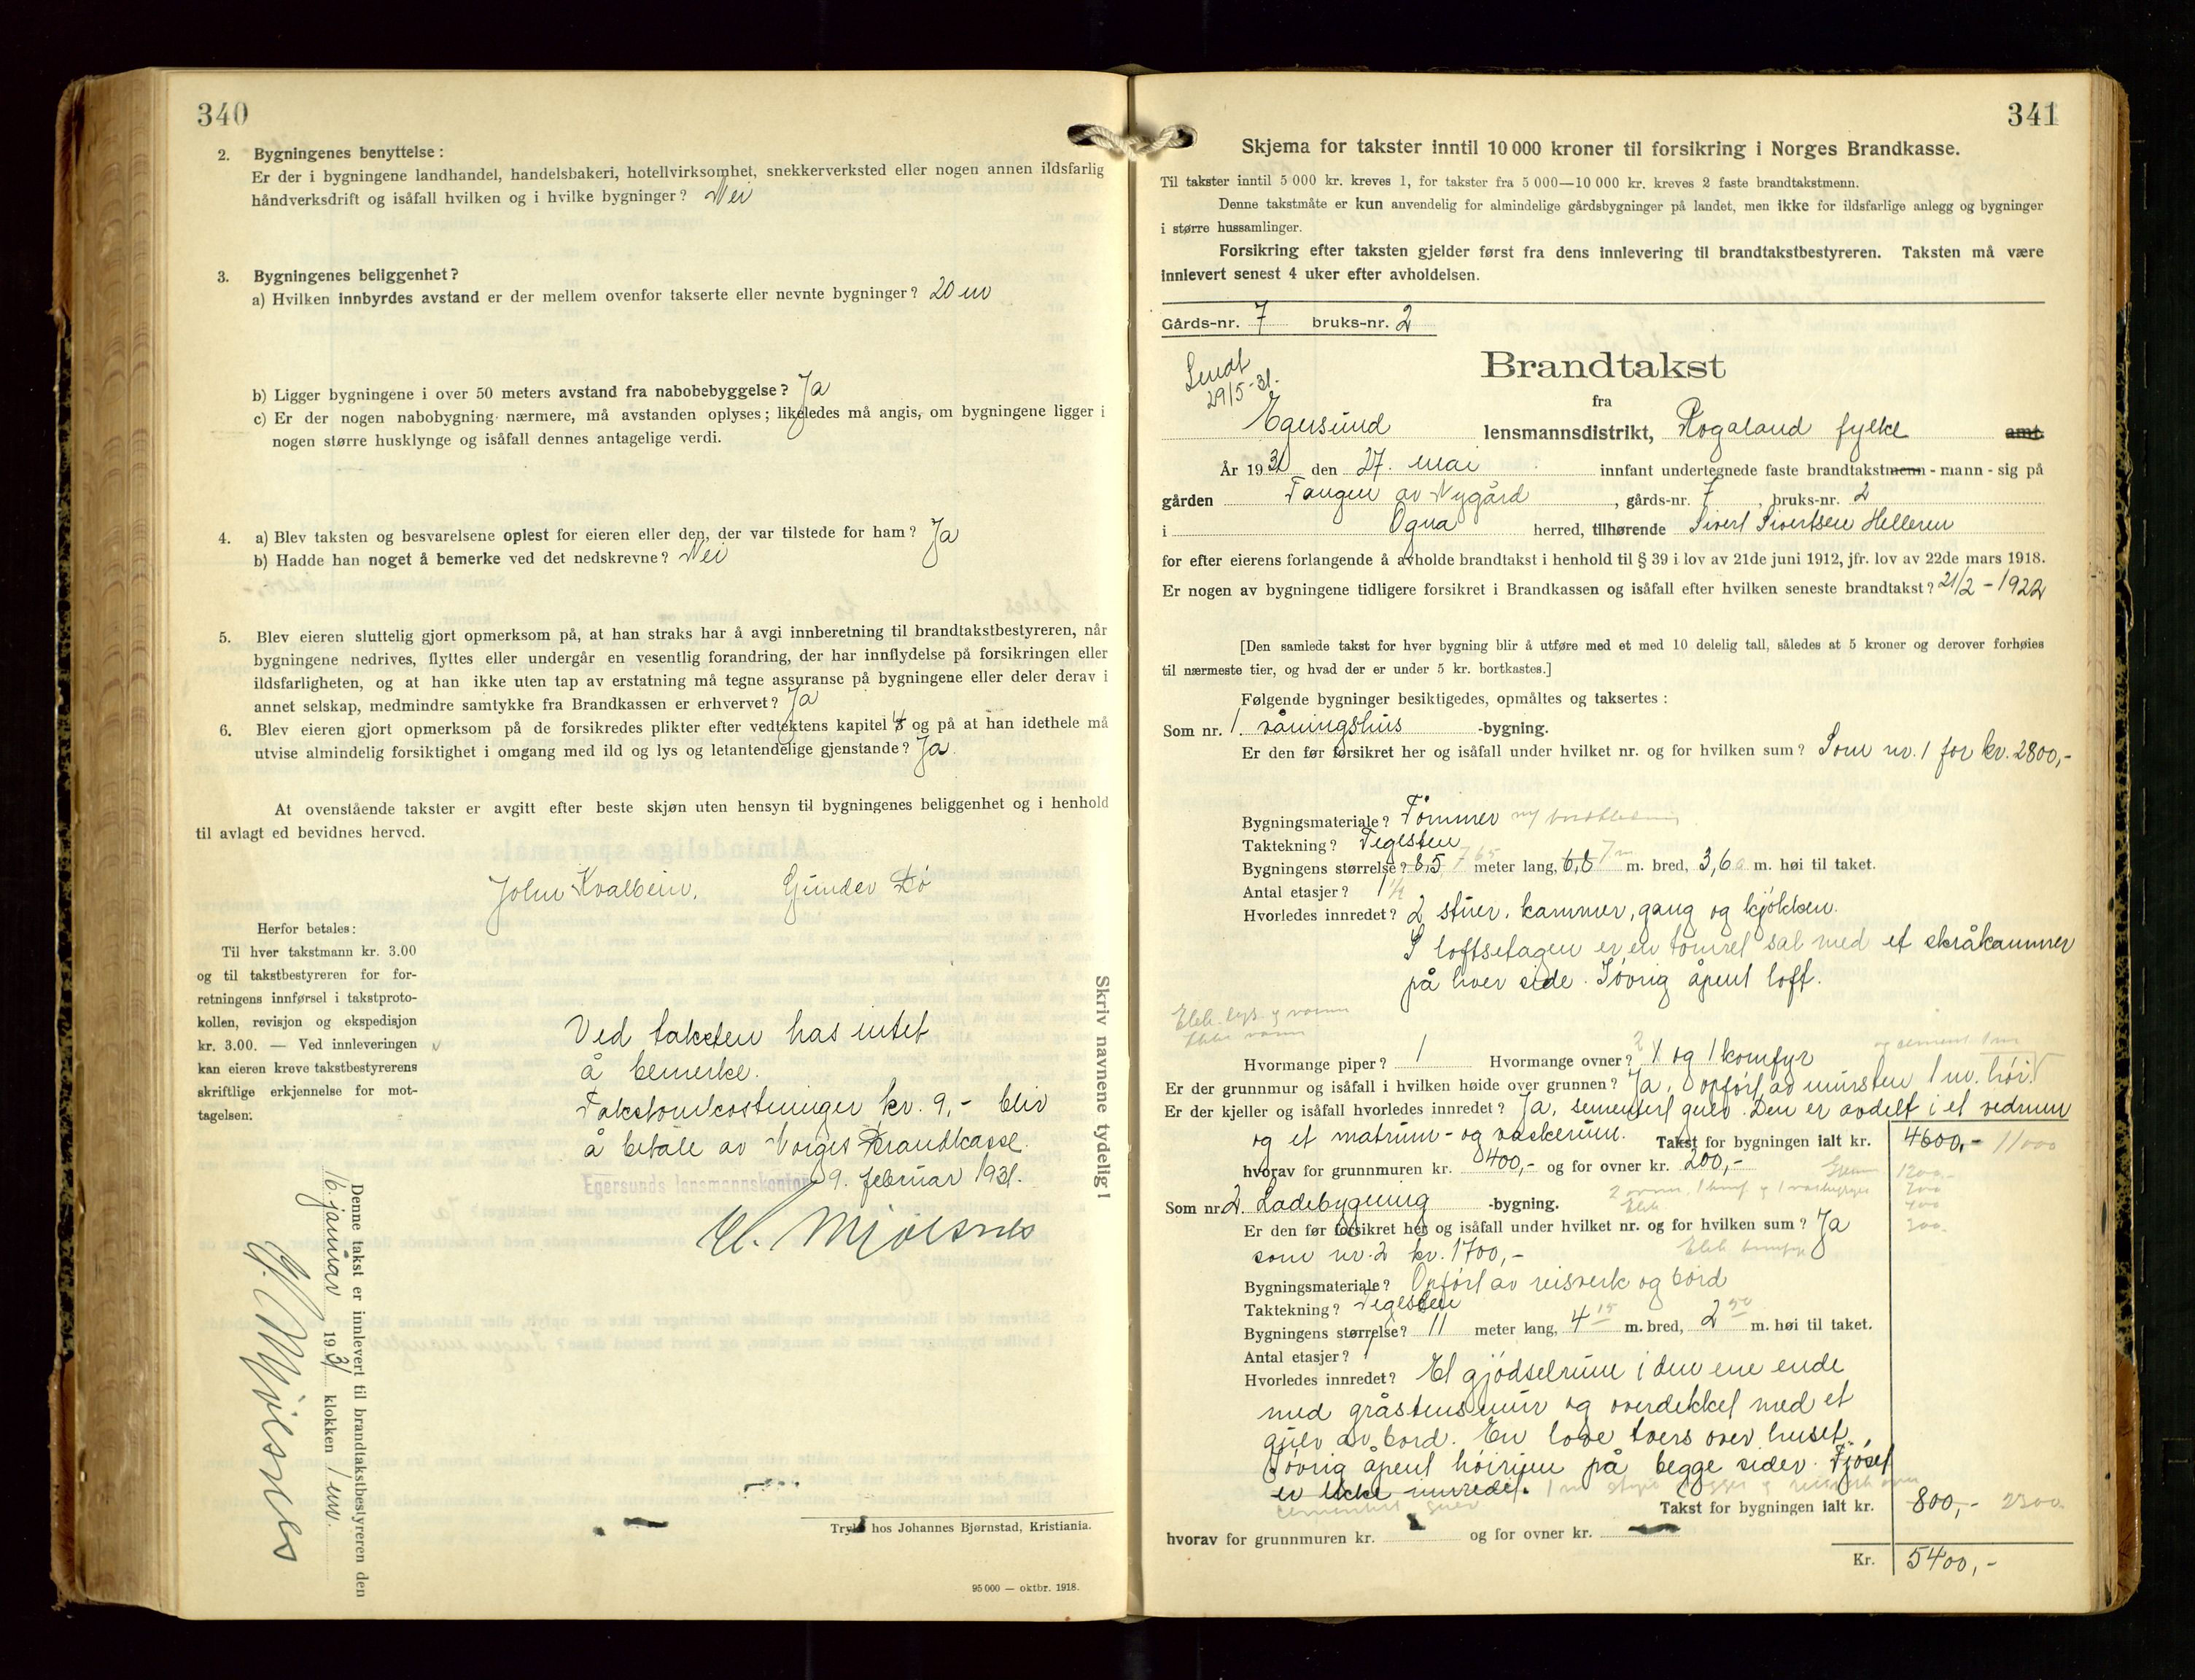 340
2. Bygningenes benyttelse:
Er der i bygningene landhandel, handelsbakeri, hotellvirksomhet, snekkerverksted eller nogen annen ildsfarlig
håndverksdrift og isåfall hvilken og i hvilke bygninger? Nei
3. Bygningenes beliggenhet?
a) Hvilken innbyrdes avstand er der mellem ovenfor takserte eller nevnte bygninger? 20 m
b) Ligger bygningene i over 50 meters avstand fra nabobebyggelse? Ja
c) Er der nogen nabobygning nærmere, må avstanden oplyses; likeledes må angis, om bygningene ligger i
nogen større husklynge og isåfall dennes antagelige verdi.
4. a) Blev taksten og besvarelsene oplest for eieren eller den, der var tilstede for ham? Ja
b) Hadde han noget å bemerke ved det nedskrevne? Nei
5. Blev eieren sluttelig gjort opmerksom på, at han straks har å avgi innberetning til brandtakstbestyreren, når
bygningene nedrives, flyttes eller undergår en vesentlig forandring, der har innflydelse på forsikringen eller
ildsfarligheten, og at han ikke uten tap av erstatning må tegne assuranse på bygningene eller deler derav i
annet selskap, medmindre samtykke fra Brandkassen er erhvervet? Ja
6. Blev eieren gjort opmerksom på de forsikredes plikter efter vedtektens kapitel 4 og på at han idethele må
utvise almindelig forsiktighet i omgang med ild og lys og letantendelige gjenstande? Ja.
At ovenstående takster er avgitt efter beste skjøn uten hensyn til bygningenes beliggenhet og i henhold
til avlagt ed bevidnes herved.
John Kvalbein. Gunder Bø
Herfor betales:
Til hver takstmann kr. 3.00
og til takstbestyreren for for-
retningens innførsel i takstproto-
kollen, revisjon og ekspedisjon
kr. 3.00. — Ved innleveringen
kan eieren kreve takstbestyrerens
skriftlige erkjennelse for mot-
tagelsen.
Ved taksten has intet
å bemerke.
Takstomkostninger kr. 9,- blir
å betale av Norges Brandkasse.
Egersunds lensmannskontor 9. februar 1931.
H. Mjølsnes
Skriv navnene tydelig!
Denne takst er innlevert til brandtakstbestyreren den
16. januar 1931 klokken 1 em.
H. Mjølsnes
Trykt hos Johannes Bjørnstad, Kristiania.
95 000 — oktbr. 1918.
341
Skjema for takster inntil 10 000 kroner til forsikring i Norges Brandkasse.
Til takster inntil 5 000 kr. kreves 1, for takster fra 5 000—10 000 kr. kreves 2 faste brandtakstmenn.
Denne takstmåte er kun anvendelig for almindelige gårdsbygninger på landet, men ikke for ildsfarlige anlegg og bygninger
i større hussamlinger.
Forsikring efter taksten gjelder først fra dens innlevering til brandtakstbestyreren. Taksten må være
innlevert senest 4 uker efter avholdelsen.
Gårds-nr. 7 bruks-nr. 2
Sendt
29/5-31.
Brandtakst
fra
Egersund lensmannsdistrikt, Rogaland fylke amt.
År 1931 den 27. mai innfant undertegnede faste brandtakstmenn - mann - sig på
gården Tangen av Nygård, gårds-nr. 7, bruks-nr. 2
i Ogna herred, tilhørende Sivert Sivertsen Helleren
for efter eierens forlangende å avholde brandtakst i henhold til § 39 i lov av 21de juni 1912, jfr. lov av 22de mars 1918.
Er nogen av bygningene tidligere forsikret i Brandkassen og isåfall efter hvilken seneste brandtakst? 21/2 - 1922
[Den samlede takst for hver bygning blir å utføre med et med 10 delelig tall, således at 5 kroner og derover forhøies
til nærmeste tier, og hvad der er under 5 kr. bortkastes.]
Følgende bygninger besiktigedes, opmåltes og taksertes:
Som nr. 1. våningshus -bygning.
Er den før forsikret her og isåfall under hvilket nr. og for hvilken sum? Som nr. 1 for kr. 2800,-
Bygningsmateriale? Tømmer ny bordkledning
Taktekning? Teglsten
Bygningens størrelse? 8,5 7 65 meter lang, 6,8 7 m. bred, 3,6 m. høi til taket.
Antal etasjer? 1 1/2
Hvorledes innredet? 2 stuer, kammer, gang og kjøkken.
I loftsetagen er en tømret sal med et skråkammer
på hver side. Iøvrig åpent loft.
Elek. lys og varm
Hvormange piper? 1 Hvormange ovner? 2 1 og 1 komfyr
og cement 1 m
Er der grunnmur og isåfall i hvilken høide over grunnen? Ja, opført av mursten 1 m. høi.
Er der kjeller og isåfall hvorledes innredet? Ja, sementert gulv. Den er avdelt i et vedrum
og et matrum- og vaskerum. Takst for bygningen ialt kr. 4600,- 11000
hvorav for grunnmuren kr. 400,- og for ovner kr. 200,- 1200.-
Som nr. 2. Ladebygning -bygning.
Er den før forsikret her og isåfall under hvilket nr. og for hvilken sum? Ja
som nr. 2 kr. 1700,-
Elek komfyr
Bygningsmateriale? Opført av reisverk og bord
Taktekning? Teglsten
Bygningens størrelse? 11 meter lang, 4 15 m. bred, 2 50 m. høi til taket.
Antal etasjer? 1
Hvorledes innredet? Et gjødselrum i den ene ende
med gråstensmur og overdekket med et
gulv av bord. En love tvers over huset.
Iøvrig åpent høirum på begge sider. Fjøset
er ikke innredet.
cementert gulv
Takst for bygningen ialt kr. 800,- 2300
hvorav for grunnmuren kr. og for ovner kr.
Kr. 5400,-